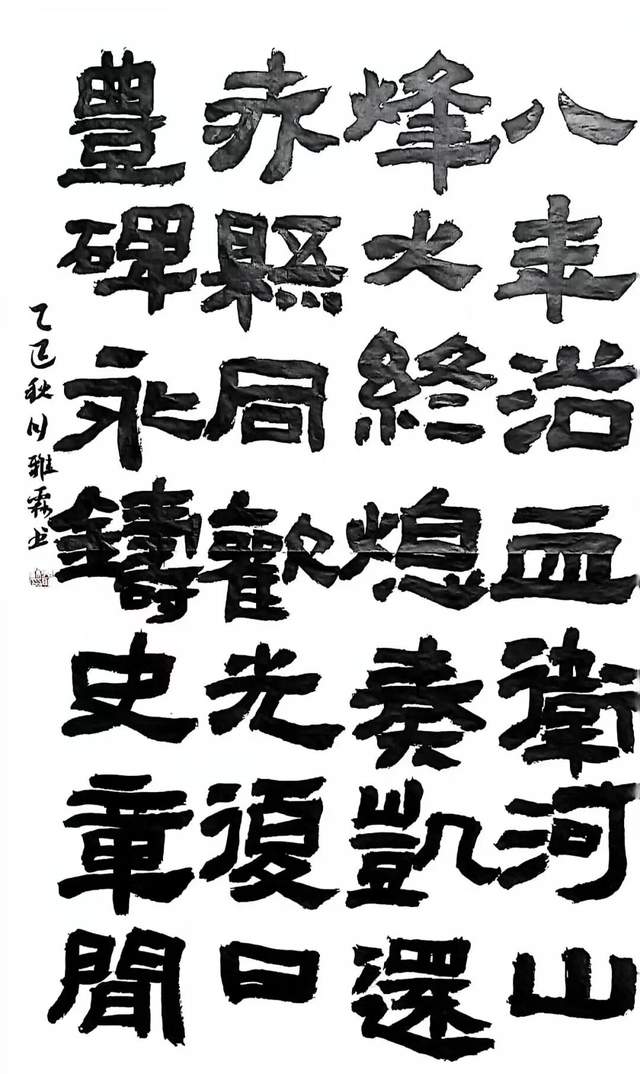 八年浴血衛河山
烽火終熄奏凱還
赤縣同歡光復日
豐碑永鑄史章間
乙巳秋月雅霖书